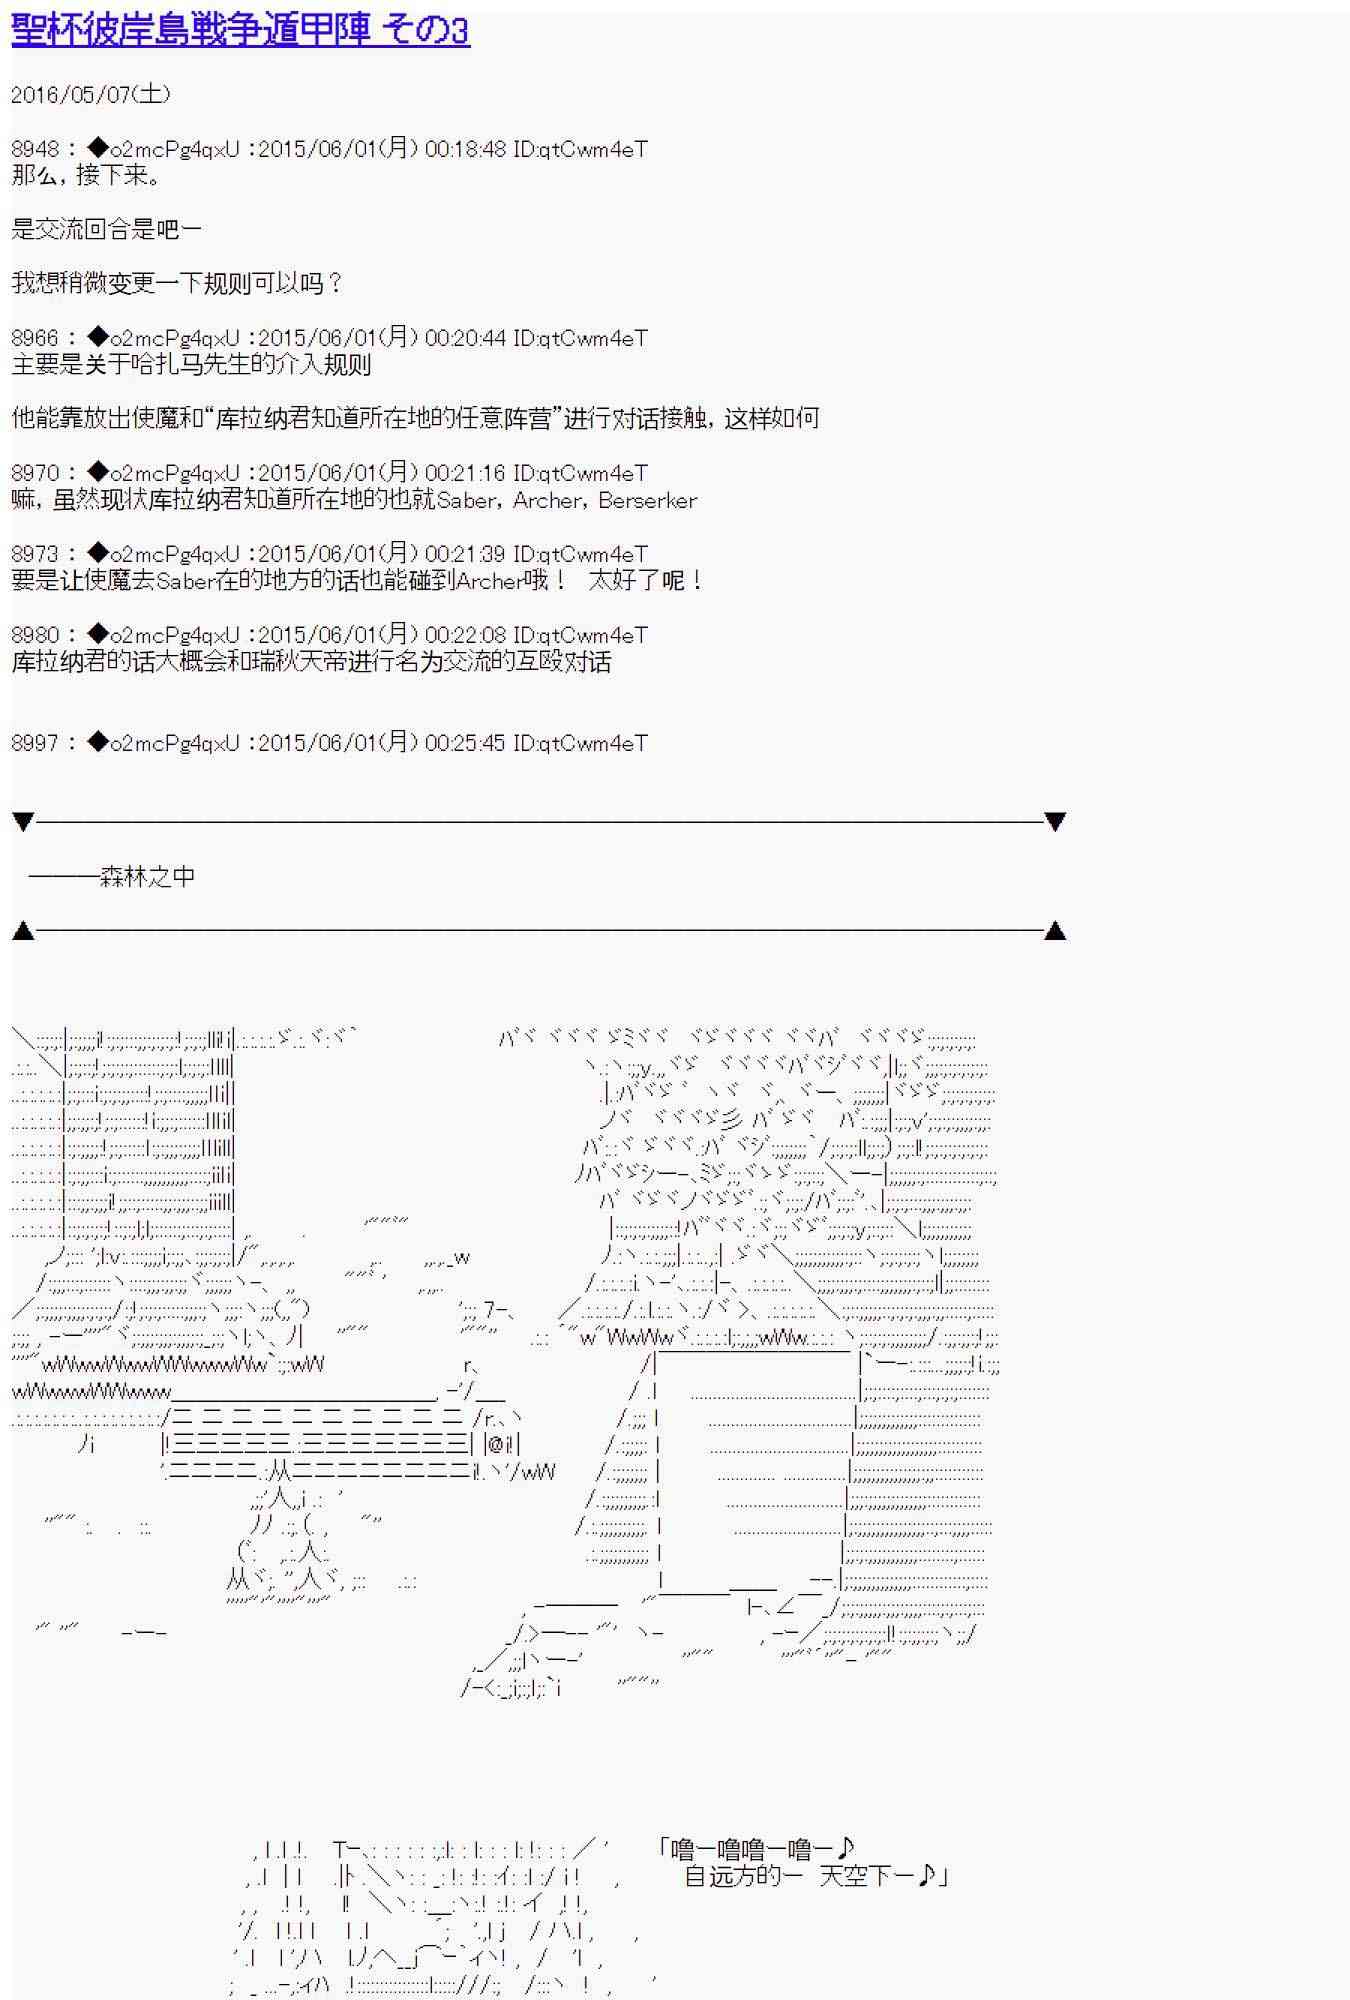 聖杯彼岸島戦争遁甲陣 その3
2016/05/07(土)
8948 : ◆o2mcPg4qxU :2015/06/01(月) 00:18:48 ID:qtCwm4eT
那么, 接下来。
是交流回合是吧ー
我想稍微变更一下规则可以吗?
8966 : ◆o2mcPg4qxU :2015/06/01(月) 00:20:44 ID:qtCwm4eT
主要是关于哈扎马先生的介入规则
他能靠放出使魔和“库拉纳君知道所在地的任意阵营”进行对话接触, 这样如何
8970 : ◆o2mcPg4qxU :2015/06/01(月) 00:21:16 ID:qtCwm4eT
嘛, 虽然现状库拉纳君知道所在地的也就Saber, Archer, Berserker
8973 : ◆o2mcPg4qxU :2015/06/01(月) 00:21:39 ID:qtCwm4eT
要是让使魔去Saber在的地方的话也能碰到Archer哦! 太好了呢!
8980 : ◆o2mcPg4qxU :2015/06/01(月) 00:22:08 ID:qtCwm4eT
库拉纳君的话大概会和瑞秋天帝进行名为交流的互殴对话
8997 : ◆o2mcPg4qxU :2015/06/01(月) 00:25:45 ID:qtCwm4eT
―――森林之中
「噜ー噜噜ー噜ー♪
自远方的ー 天空下ー♪」